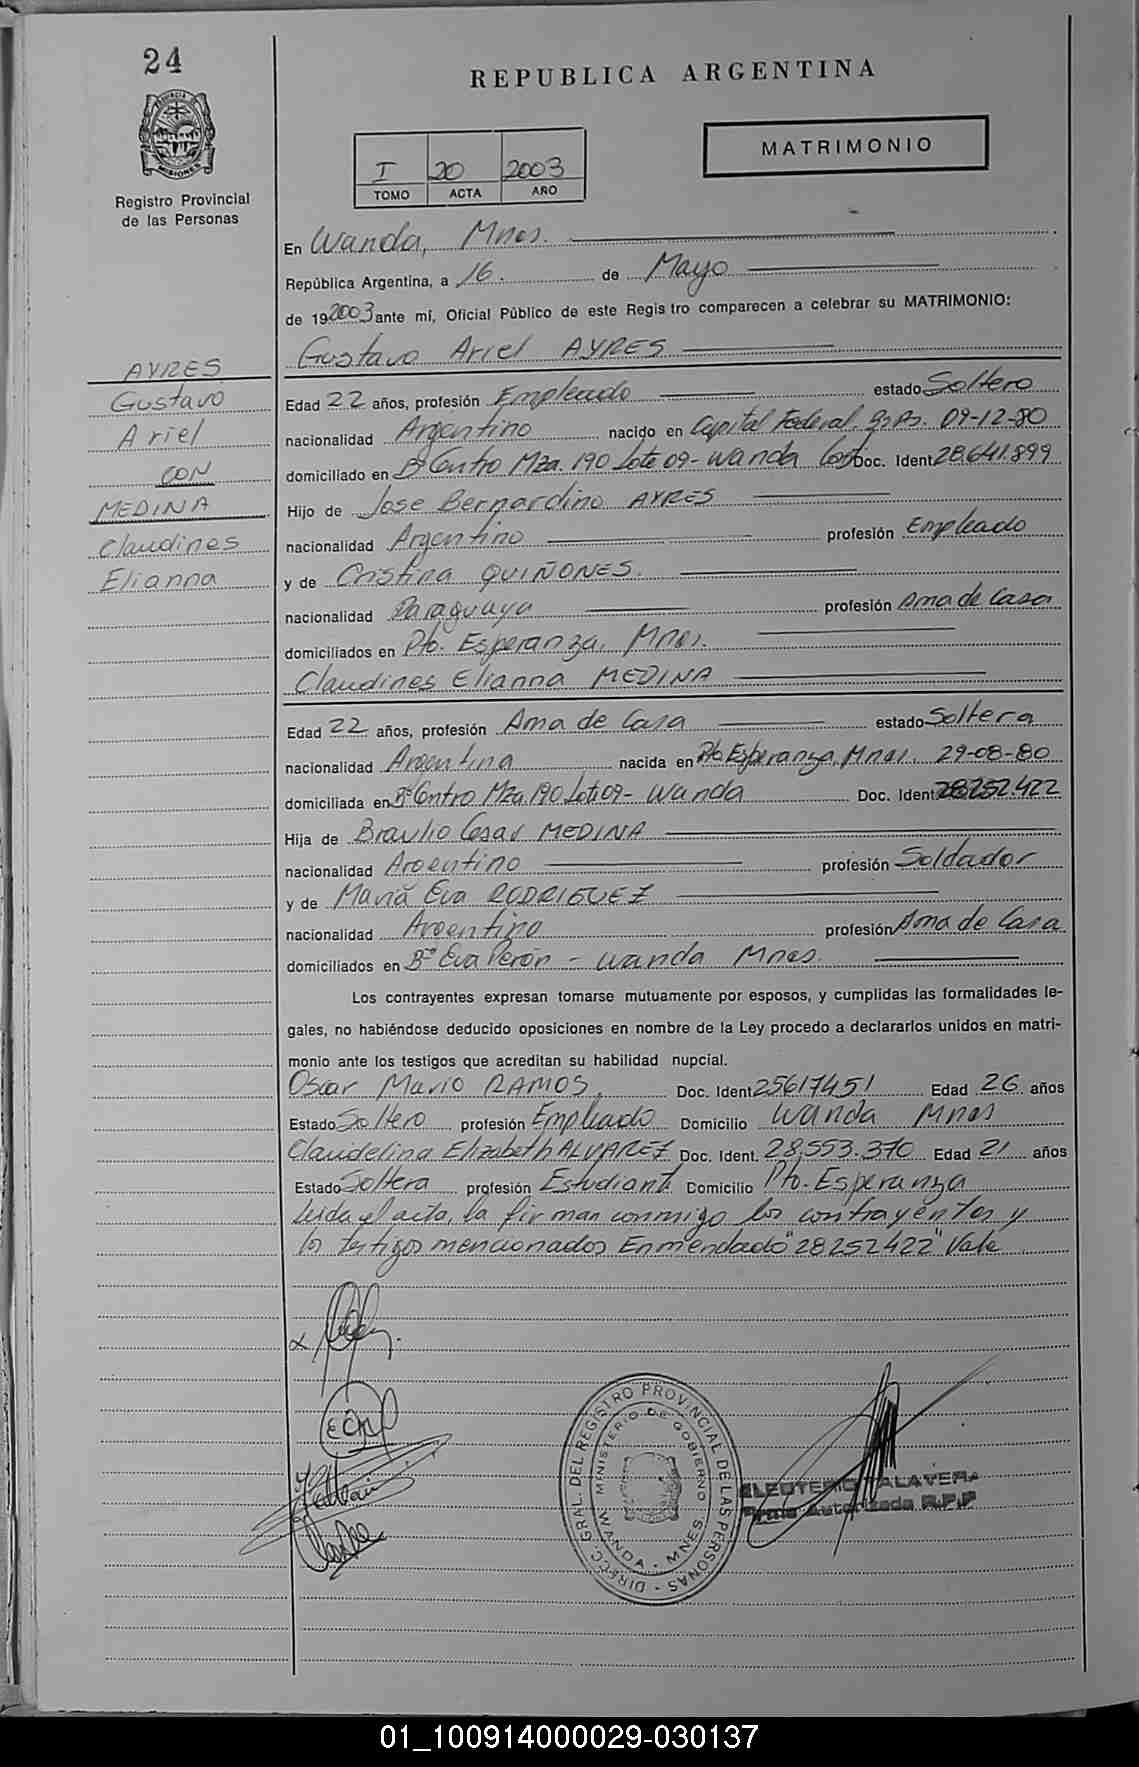 24
REPUBLICA ARGENTINA
PROVINCIA DE MISIONES
Registro Provincial
de las Personas
MATRIMONIO
I 20 2003
TOMO ACTA AÑO
En Wanda, Mnes.
República Argentina, a 16 de Mayo
de 192003 ante mí, Oficial Público de este Registro comparecen a celebrar su MATRIMONIO:
Gustavo Ariel AYRES
AYRES
Gustavo
Ariel
CON
MEDINA
Claudines
Elianna
Edad 22 años, profesión Empleado estado Soltero
nacionalidad Argentino nacido en Capital Federal. Bs As. 09-12-80
domiciliado en Bº Centro Mza. 190 Lote 09- Wanda Doc. Ident 28.641.899
Hijo de Jose Bernardino AYRES
nacionalidad Argentino profesión Empleado
y de Cristina QUIÑONES.
nacionalidad Paraguaya profesión Ama de Casa
domiciliados en Pto. Esperanza, Mnes.
Claudines Elianna MEDINA
Edad 22 años, profesión Ama de Casa estado Soltera
nacionalidad Argentina nacida en Pto Esperanza, Mnes. 29-08-80
domiciliada en Bº Centro Mza. 190 Lote 09- Wanda Doc. Ident 28252.422
Hija de Braulio Cesar MEDINA
nacionalidad Argentino profesión Soldador
y de Maria Eva RODRIGUEZ
nacionalidad Argentina profesión Ama de Casa
domiciliados en Bº Eva Perón - Wanda Mnes.
Los contrayentes expresan tomarse mutuamente por esposos, y cumplidas las formalidades le-
gales, no habiéndose deducido oposiciones en nombre de la Ley procedo a declararlos unidos en matri-
monio ante los testigos que acreditan su habilidad nupcial.
Oscar Mario RAMOS, Doc. Ident 25617451 Edad 26 años
Estado Soltero profesión Empleado Domicilio Wanda Mnes
Claudelina Elizabeth ALVAREZ Doc. Ident. 28,553.370 Edad 21 años
Estado Soltera profesión Estudiante Domicilio Pto. Esperanza
Leida el acta, la firman conmigo los contrayentes y
los testigos mencionados Enmendado "28252422" Vale
DIREC. GRAL. DEL REGISTRO PROVINCIAL DE LAS PERSONAS
MINISTERIO DE GOBIERNO
WANDA - MNES.
ELEUTERIO TALAVERA
Firma Autorizada R.P.P
01_100914000029-030137